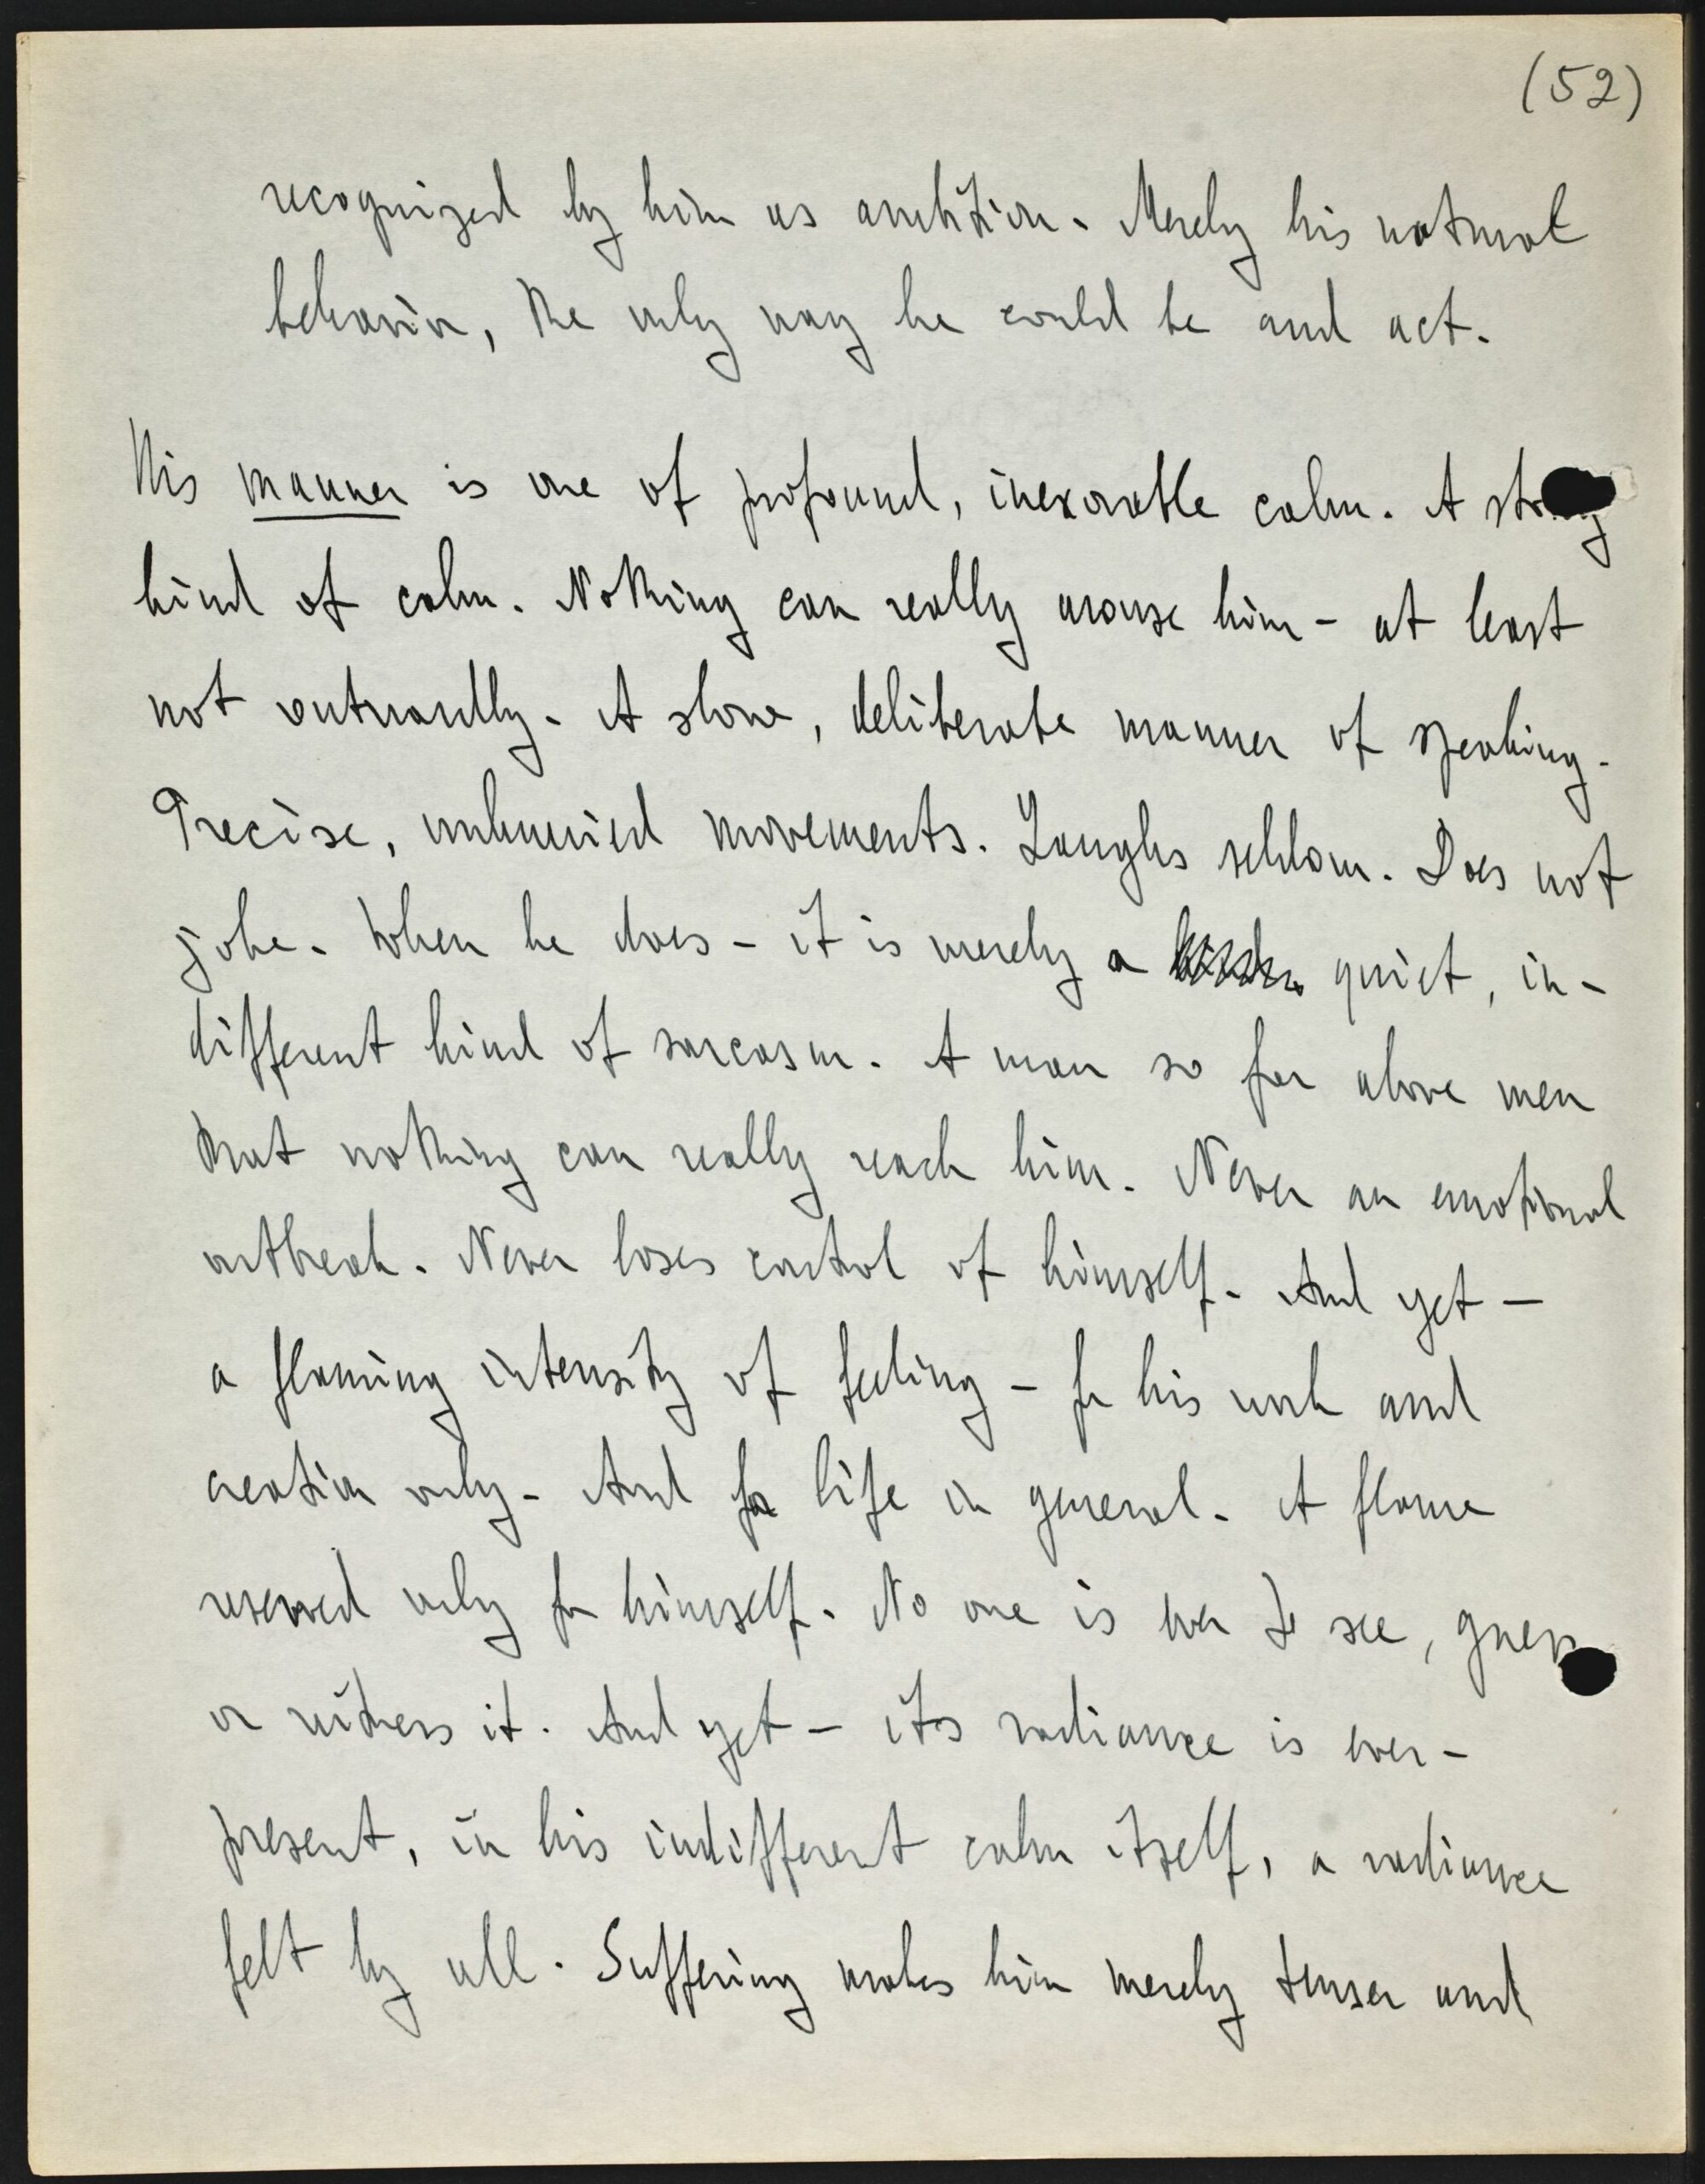 (52)
recognized by him as ambition. Merely his natural
behavior, the only way he could be and act.
His manner is one of profound, inexorable calm. A strong
kind of calm. Nothing can really arouse him - at least
not outwardly. A slow, deliberate manner of speaking.
Precise, unhurried movements. Laughs seldom. Does not
joke. When he does - it is merely a quiet, in-
different kind of sarcasm. A man so far above men
that nothing can really reach him. Never an emotional
outbreak. Never loses control of himself. And yet —
a flaming intensity of feeling - for his work and
creation only. And for life in general. A flame
reserved only for himself. No one is ever to see, guess
or witness it. And yet — its radiance is ever-
present, in his indifferent calm itself, a radiance
felt by all. Suffering makes him merely tenser and